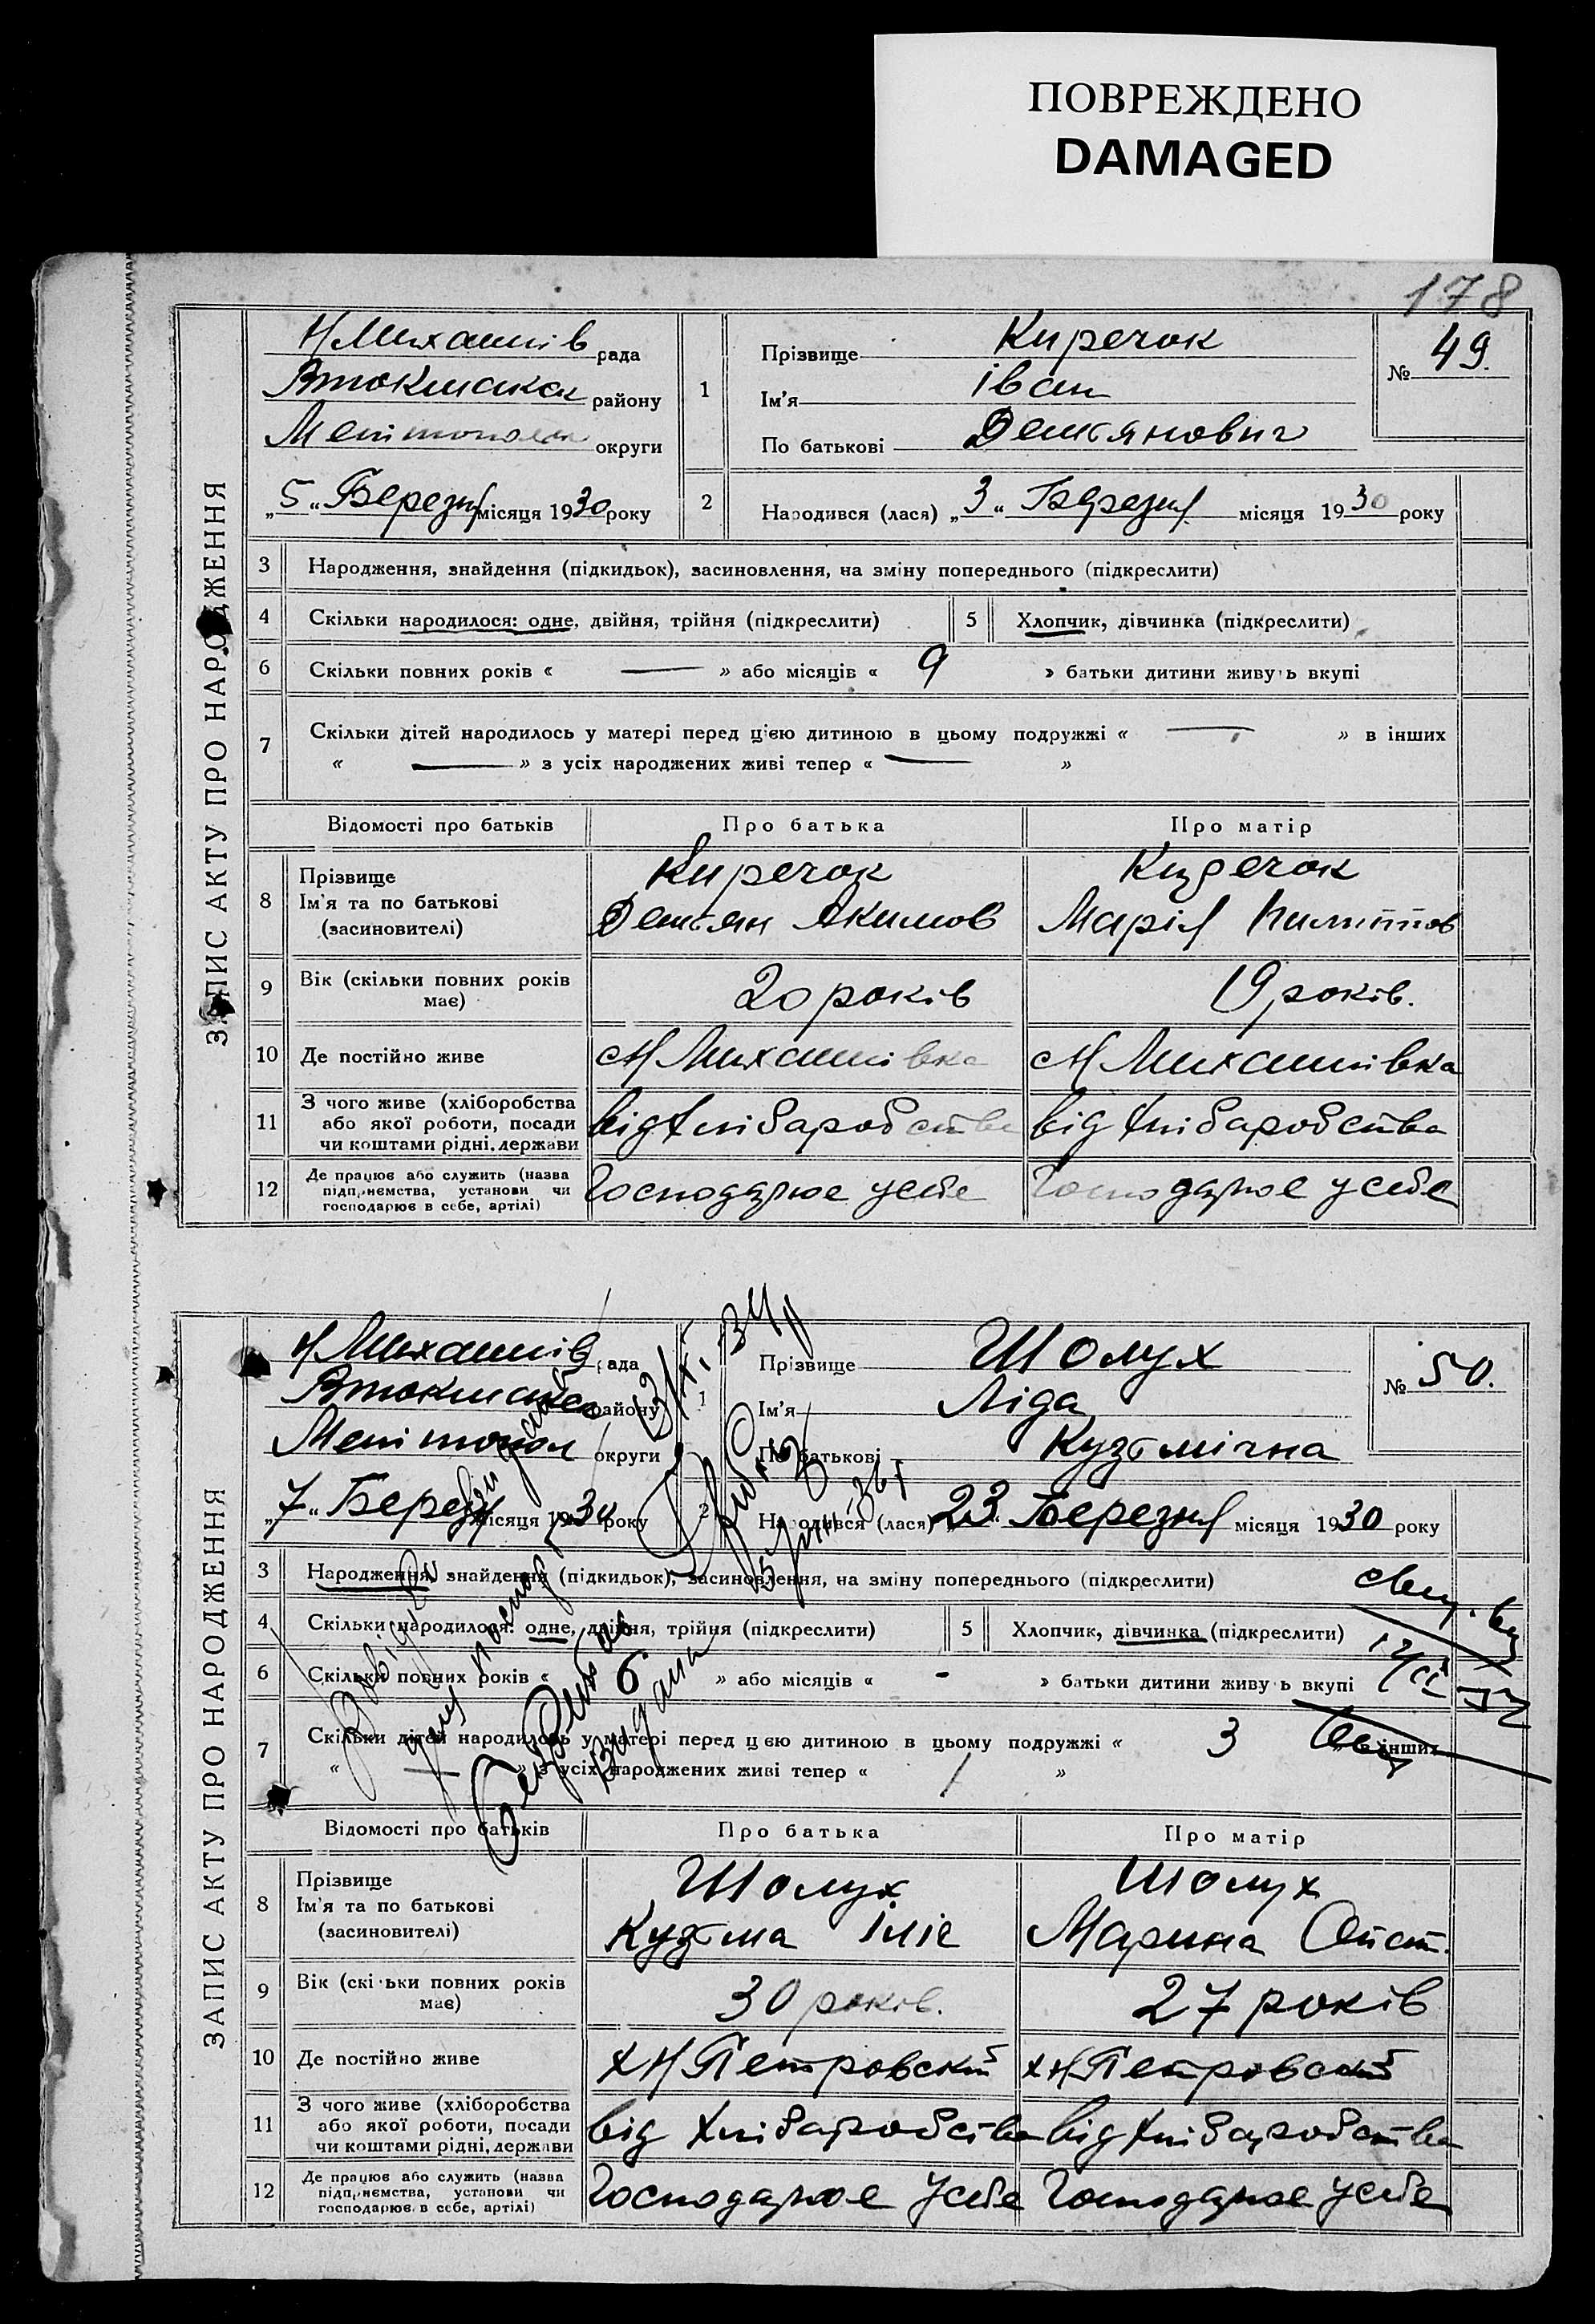 ПОВРЕЖДЕНО
DAMAGED
178
ЗАПИС АКТУ ПРО НАРОДЖЕННЯ
Н Михайлів рада
Втокмакск району
Мелітопол округи
„5“ Березня місяця 1930 року
1 Прізвище Киречок
Ім'я Іван
По батькові Демьянович
№ 49.
2 Народився (лася) „3“ Березня місяця 1930 року
3 Народження, знайдення (підкидьок), засиновлення, на зміну попереднього (підкреслити)
4 Скільки народилося: одне, двійня, трійня (підкреслити) 5 Хлопчик, дівчинка (підкреслити)
6 Скільки повних років « — » або місяців « 9 » батьки дитини живуть вкупі
7 Скільки дітей народилось у матері перед цією дитиною в цьому подружжі « — » в інших
« — » з усіх народжених живі тепер « — »
Відомості про батьків Про батька Про матір
8 Прізвище Киречок Киречок
Ім'я та по батькові Демьян Якимов Марія Пилиппов
(засиновителі)
9 Вік (скільки повних років має) 20 років 19 років.
10 Де постійно живе с Н Михайлівка с Н Михайлівка
11 З чого живе (хліборобства
або якої роботи, посади від хлібаробства від хлібаробства
чи коштами рідні, держави
12 Де працює або служить (назва
підприємства, установи чи Господарює усебе Господарює усебе
господарює в себе, артілі)
ЗАПИС АКТУ ПРО НАРОДЖЕННЯ
Н Михайлів рада
Втокмакск району
Мелітопол округи
„7“ Березня місяця 1930 року
1 Прізвище Шолух
Ім'я Ліда
По батькові Кузьмічна
№ 50.
2 Народився (лася) „23“ Березня місяця 1930 року
3 Народження, знайдення (підкидьок), засиновлення, на зміну попереднього (підкреслити)
4 Скільки народилося: одне, двійня, трійня (підкреслити) 5 Хлопчик, дівчинка (підкреслити)
6 Скільки повних років « 6 » або місяців « - » батьки дитини живуть вкупі
7 Скільки дітей народилось у матері перед цією дитиною в цьому подружжі « 3 » в інших
« — » з усіх народжених живі тепер « 1 »
видана
Відомості про батьків Про батька Про матір
8 Прізвище Шолух Шолух
Ім'я та по батькові Кузьма Ілліє Марина Опист.
(засиновителі)
9 Вік (скільки повних років має) 30 років. 27 років
10 Де постійно живе х Н Петровский х Н Петровский
11 З чого живе (хліборобства
або якої роботи, посади від хлібаробства від хлібаробства
чи коштами рідні, держави
12 Де працює або служить (назва
підприємства, установи чи Господарює усебе Господарює усебе
господарює в себе, артілі)